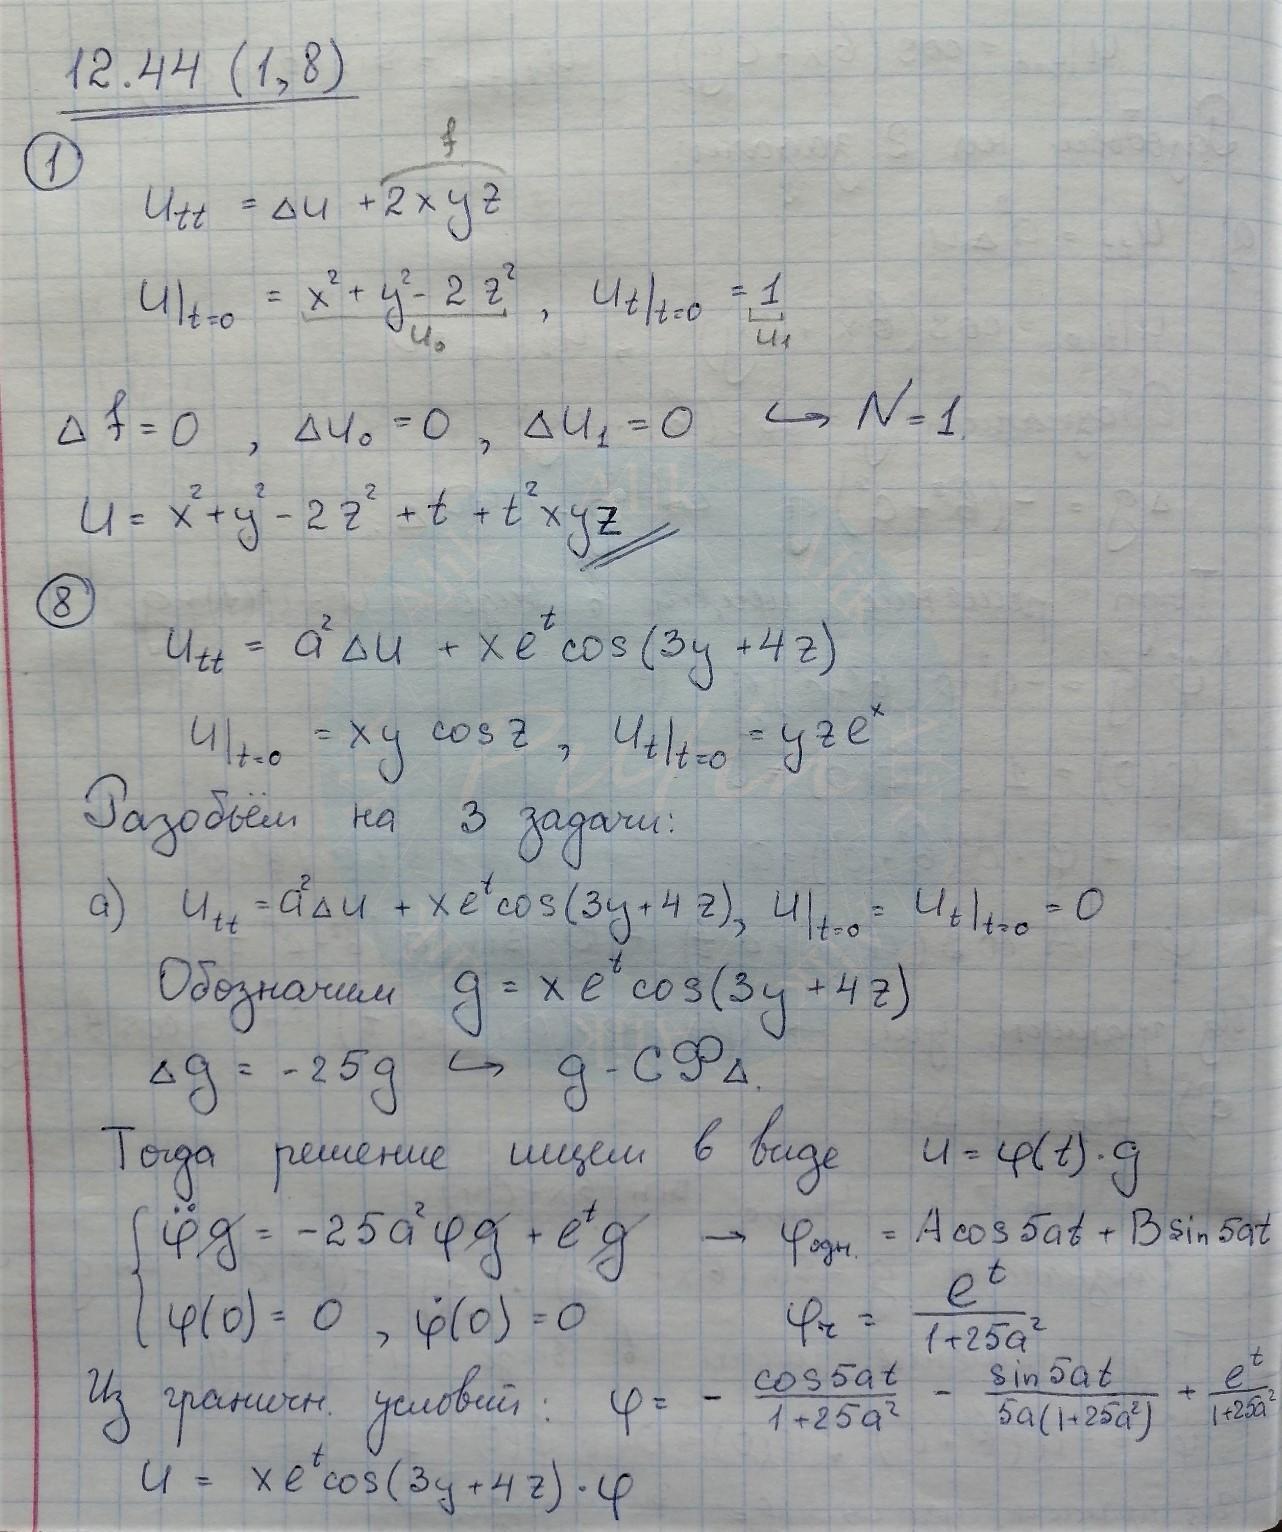 12.44 (1,8)
① f
u_tt = Δu + 2xyz
u|_{t=0} = x² + y² - 2z², u_t|_{t=0} = 1
u₀ u₁
Δf = 0, Δu₀ = 0, Δu₁ = 0 ↪ N = 1.
u = x² + y² - 2z² + t + t²xyz
⑧
u_tt = a²Δu + xe^t cos(3y + 4z)
u|_{t=0} = xy cos z, u_t|_{t=0} = yze^x
Разобьём на 3 задачи:
а) u_tt = a²Δu + xe^t cos(3y+4z), u|_{t=0} = u_t|_{t=0} = 0
Обозначим g = xe^t cos(3y + 4z)
Δg = -25g ↪ g - СФΔ.
Тогда решение ищем в виде u = φ(t)·g
{ φ̈g = -25a²φg + e^t g → φ_одн. = A cos 5at + B sin 5at
φ(0) = 0, φ̇(0) = 0 φ_ч = e^t/(1+25a²)
Из граничн. условий: φ = - cos5at/(1+25a²) - sin5at/(5a(1+25a²)) + e^t/(1+25a²)
u = xe^t cos(3y+4z)·φ